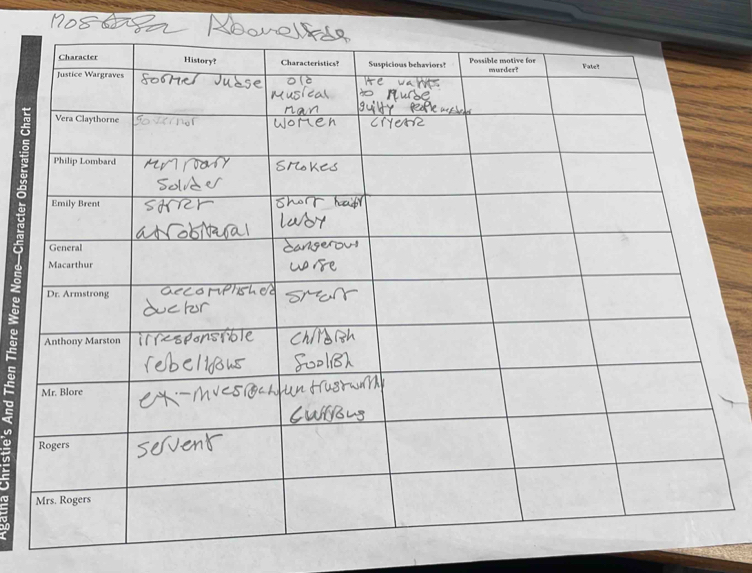 Agatha Christie's And Then There Were None—Character Observation Chart
Character
History?
Characteristics?
Suspicious behaviors?
Possible motive for
murder?
Fate?
Justice Wargraves
former Judge
old
musical
man
He wants
to
guilty people
Vera Claythorne
governor
women
Philip Lombard
Solider
smokes
Emily Brent
short hair
lady
General
Macarthur
dangerous
Dr. Armstrong
accomplished
doctor
smart
Anthony Marston
irresponsible
rebellious
childish
foolish
Mr. Blore
untrustworthy
Rogers
servent
Mrs. Rogers